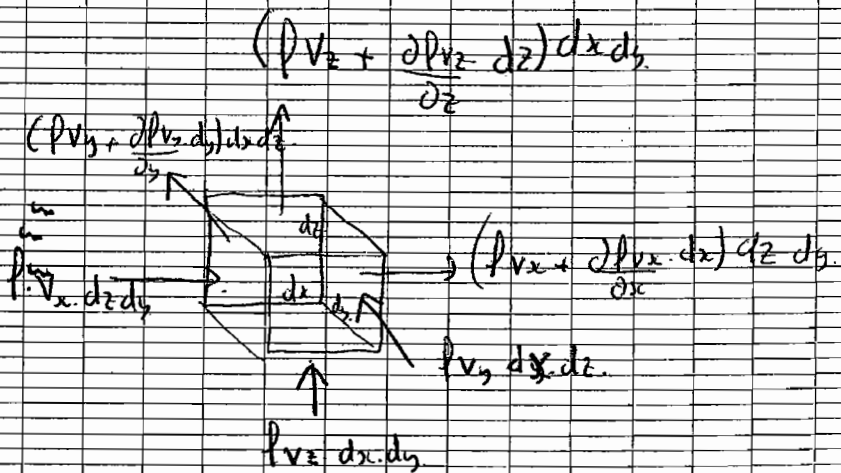 (ρVz + ∂ρvz dz) dx dy.
∂z
(ρVy + ∂ρvy.dy) dx dz.
∂y
dz
ρ.Vx.dzdy
dx
dy.
(ρvx + ∂ρvx.dx) dz dy.
∂x
ρvy dx.dz.
ρvz dx.dy.